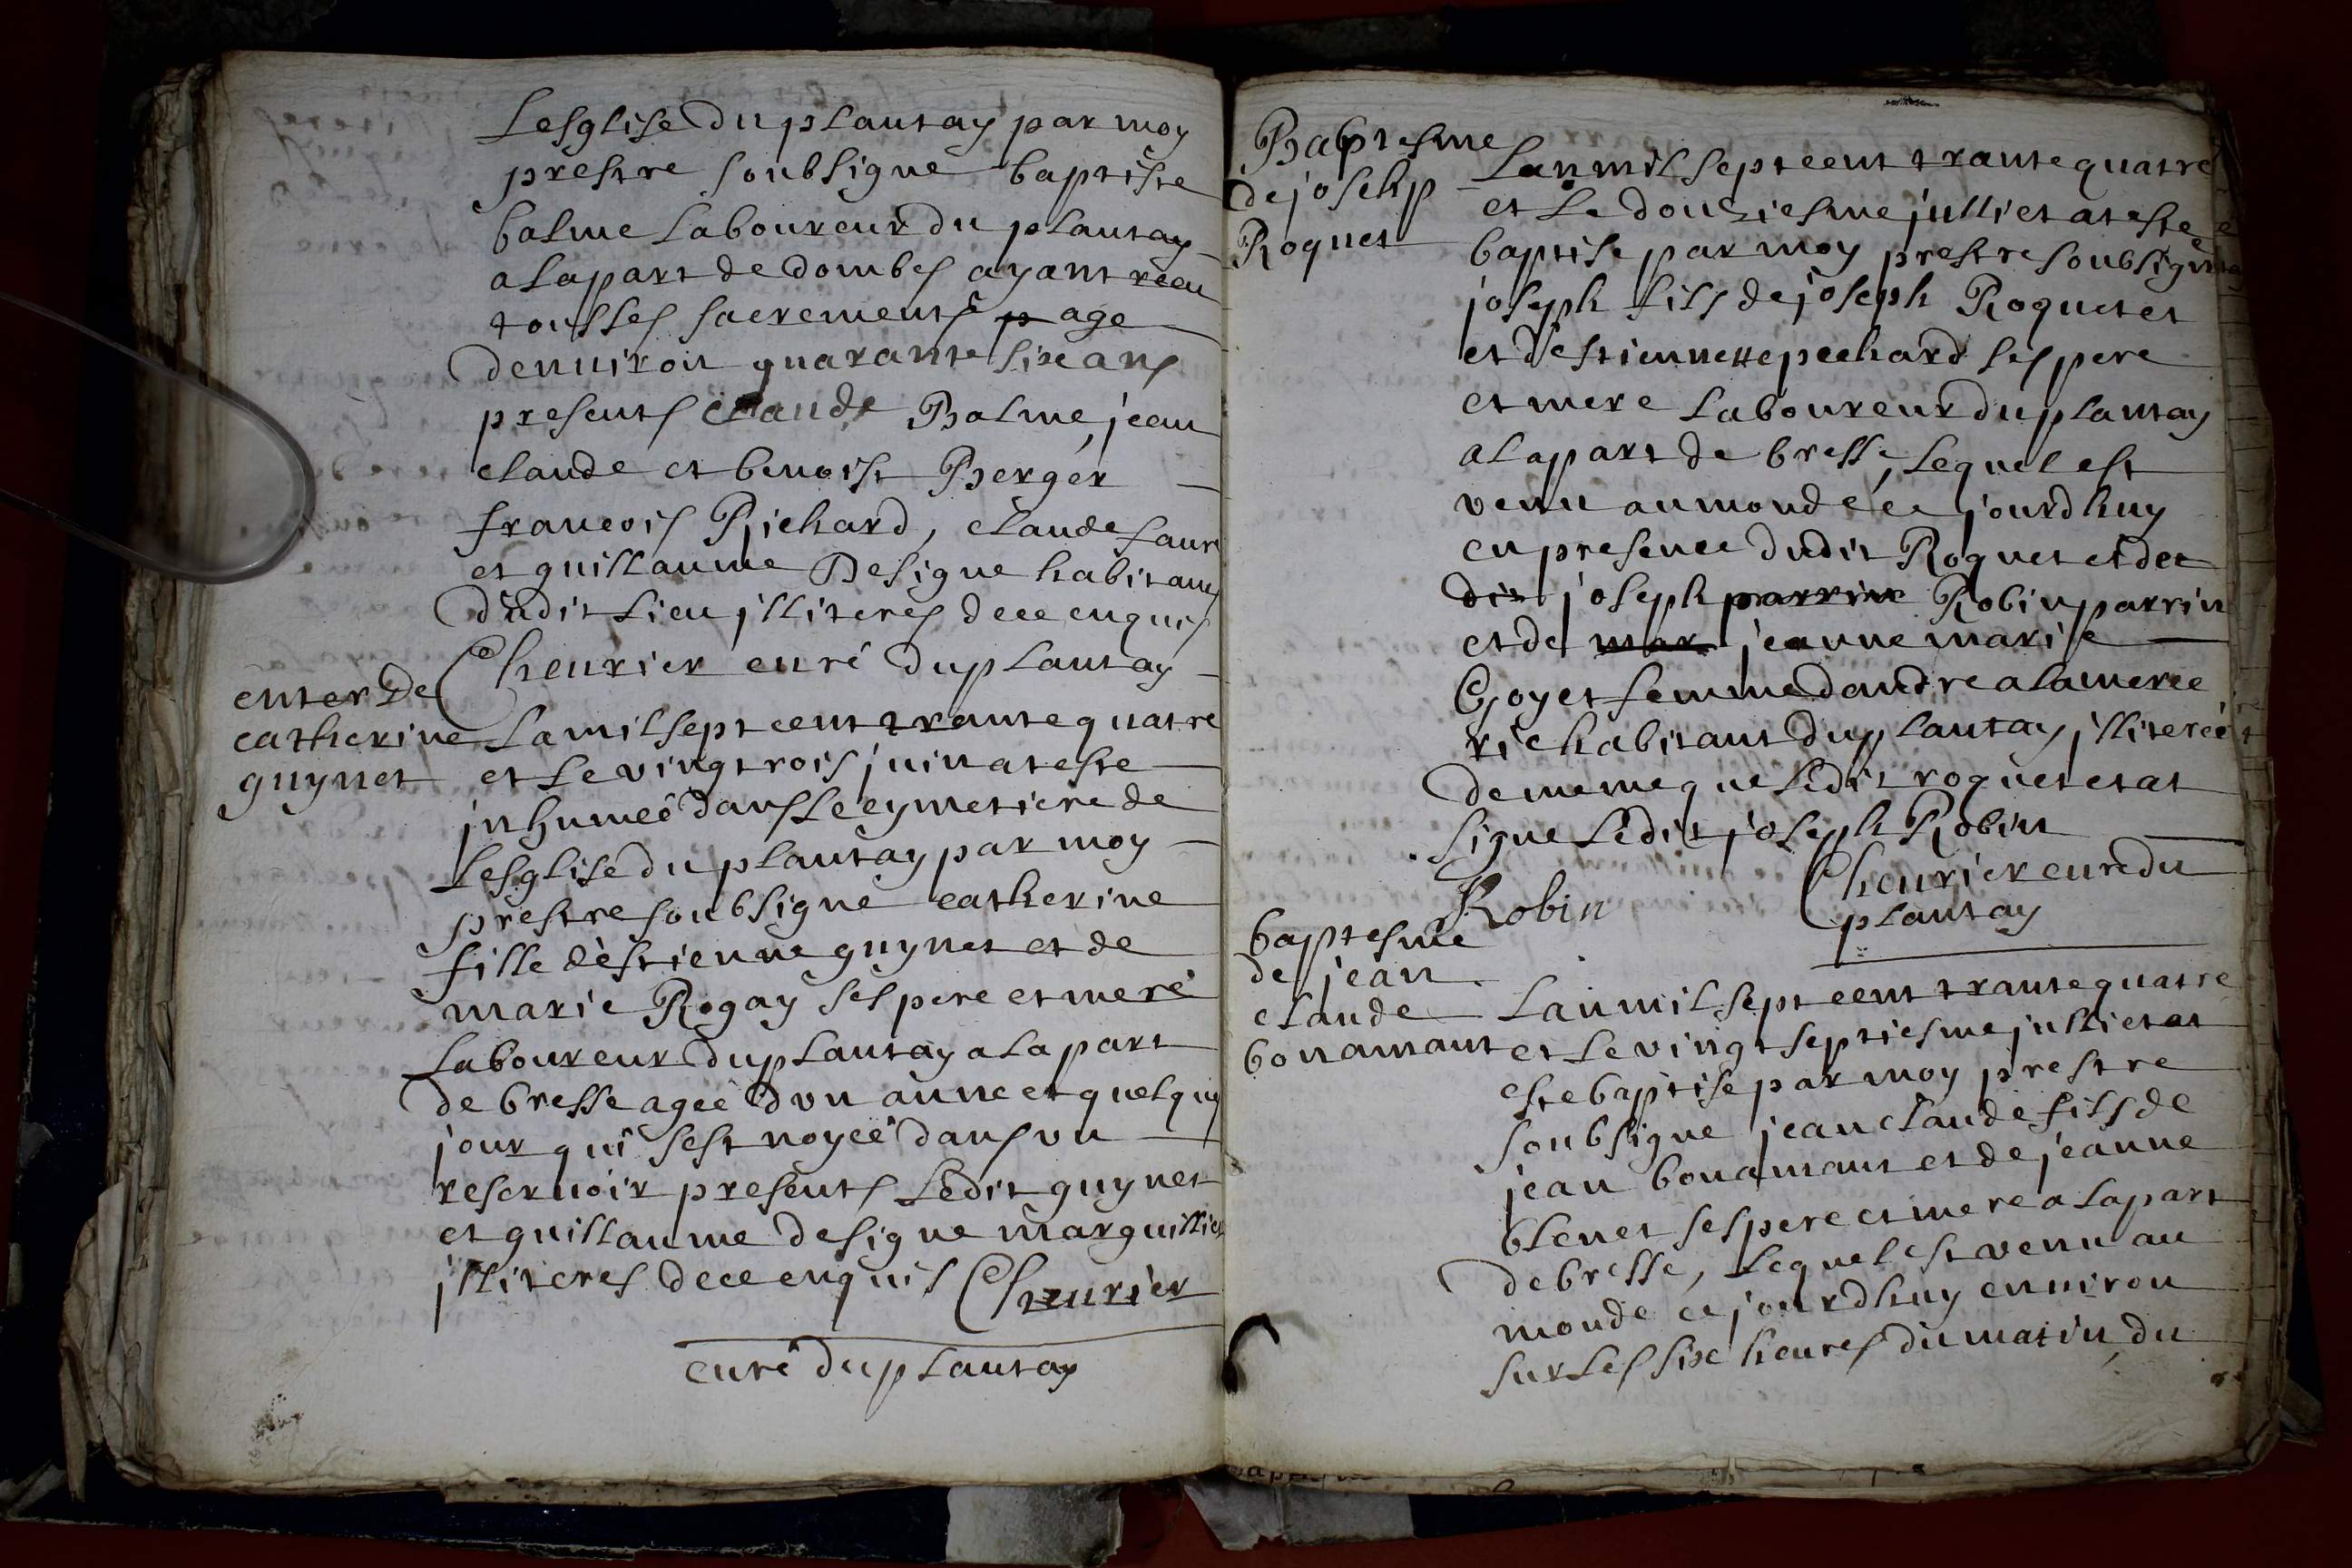 Lesglise du plantay par moy
prestre soubsigne baptiste
balme laboureur du plantay
a la part de dombes ayant recu
tousses sacrements age
denuiron quarante six ans
presents claude Balme, jean
claude et benoist Berger
francois Richard, claude faur
et guillaume Desigue habitans
dudit lieu illiteres de ce enquis
Cheurier curé du plantay
enter de
catherine
guynet
La mil sept cent trante quatre
et le vingt rois juin at este
inhumeé dans le cymetiere de
Lesglise du plantay par moy
prestre soubsigné catherine
fille destienne guynet et de
marie Rogay ses pere et mere
laboureur du plantay a la part
de bresse ageé dun anne et quelque
jour qui sest noyeé dans un
reseruoir presents ledit guynet
et guillaume desigue marguillier
illiteres de ce enquis Cheurier
curé du plantay
Baptesme
de josehp
Roquet
Lan mil sept cent trante quatre
et le douziesme julliet at este
baptise par moy prestre soubsigne
joseph fils de joseph Roquet et
et destiennette pechard ses pere
et mere laboureur du plantay
a la part de bresse, lequel est
venu au monde ce jourdhuy
en presence dudit Roquet et de
dit joseph parrin Robin parrin
et de mar jeanne marise
Goyet femme dandre alamerce
rie habitant du plantay, illitereé
de meme que ledit roquet et at
signe ledit joseph Robin
Robin
Cheurier curé du
plantay
baptesme
de jean
claude
bonamant
Lan mil sept cent trante quatre
et le vingt septiesme julliet at
este baptise par moy prestre
soubsigne jean claude fils de
jean bonamant et de jeanne
blenet ses pere et mere a la part
de bresse, lequel est venu au
monde ce jourdhuy enuiron
sur les six heures du matin, du